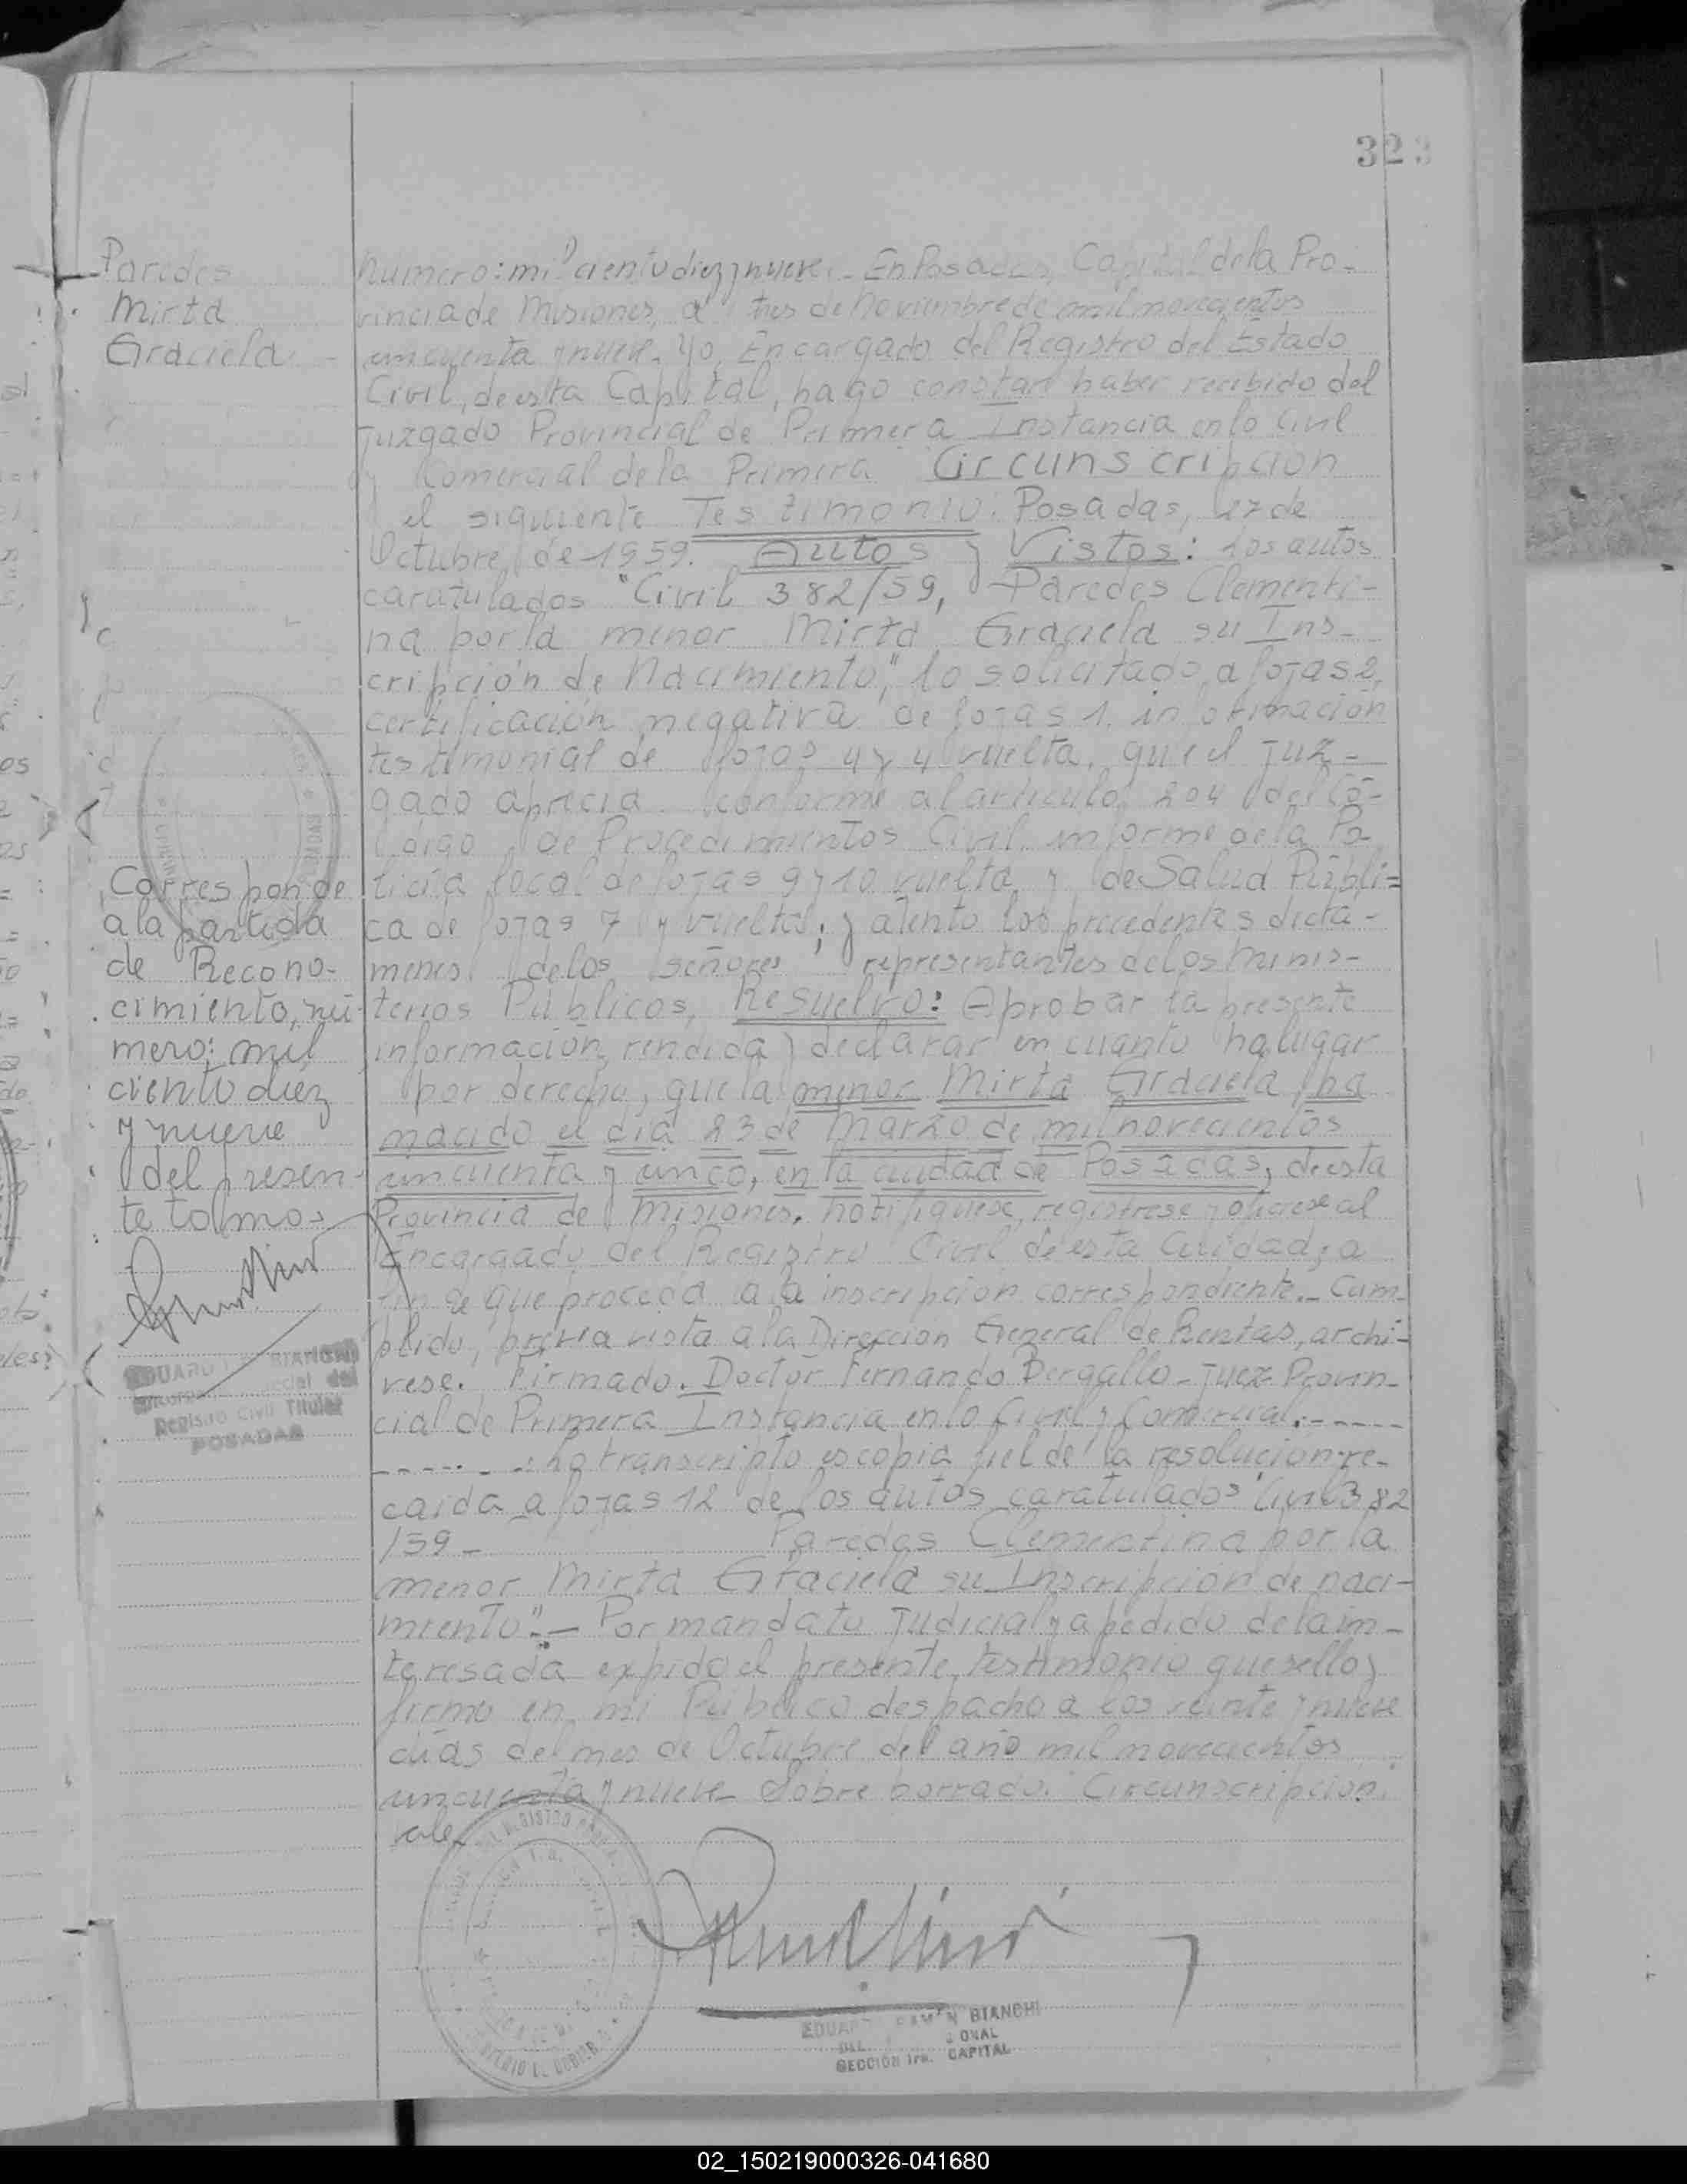 323
Paredes
Mirta
Graciela
Numero: mil ciento diez y nueve. En Posadas, Capital de la Pro-
vincia de Misiones, a tres de Noviembre de mil novecientos
cincuenta y nueve. Yo, Encargado del Registro del Estado
Civil, de esta Capital, hago constar haber recibido del
Juzgado Provincial de Primera Instancia en lo Civil
y Comercial de la Primera Circunscripcion
el siguiente Testimonio: Posadas, de
Octubre de 1959. Autos y Vistos: los autos
caratulados "Civil 382/59, Paredes Clementi-
na por la menor Mirta Graciela su Ins-
cripción de Nacimiento", lo solicitado a fojas 2,
certificación negativa de fojas 1, información
testimonial de fojas 4 y 4 vuelta, que el Juz-
gado aprecia conforme al articulo 204 del Có-
digo de Procedimientos Civil, informe de la Po-
licia local de fojas 9 y 10 vuelta y de Salud Públi=
ca de fojas 7 y vuelta; y atento los precedentes dicta-
menes de los señores representantes de los Minis-
terios Públicos, Resuelvo: Aprobar la presente
información rendida y declarar en cuanto ha lugar
por derecho, que la menor Mirta Graciela ha
nacido el dia 23 de Marzo de mil novecientos
cincuenta y cinco, en la ciudad de Posadas, de esta
Provincia de Misiones. Notifiquese, registrese y oficiese al
Encargado del Registro Civil de esta Ciudad, a
fin de que proceda a la inscripcion correspondiente.- Cum-
plido, previa vista a la Dirección General de Rentas, archi-
vese. Firmado. Doctor Fernando Bergallo - Juez Provin-
cial de Primera Instancia en lo Civil y Comercial.-----
------ Lo transcripto es copia fiel de la resolución re-
caida a fojas 12 de los autos caratulados "Civil 382
/59- Paredes Clementina por la
menor Mirta Graciela su Inscripción de naci-
miento".- Por mandato Judicial y a pedido de la in-
teresada expido el presente testimonio que sello y
firmo en mi Público despacho a los veinte y nueve
dias del mes de Octubre del año mil novecientos
cincuenta y nueve. Sobre borrado: Circunscripcion.
vale-
Corresponde
a la partida
de Recono-
cimiento, nú-
mero: mil
ciento diez
y nueve
del presen-
te tomo
BIANCHI
Registro Civil Titular
POSADAS
EDUARDO RAMON BIANCHI
SECCION 1ra. CAPITAL
02_150219000326-041680